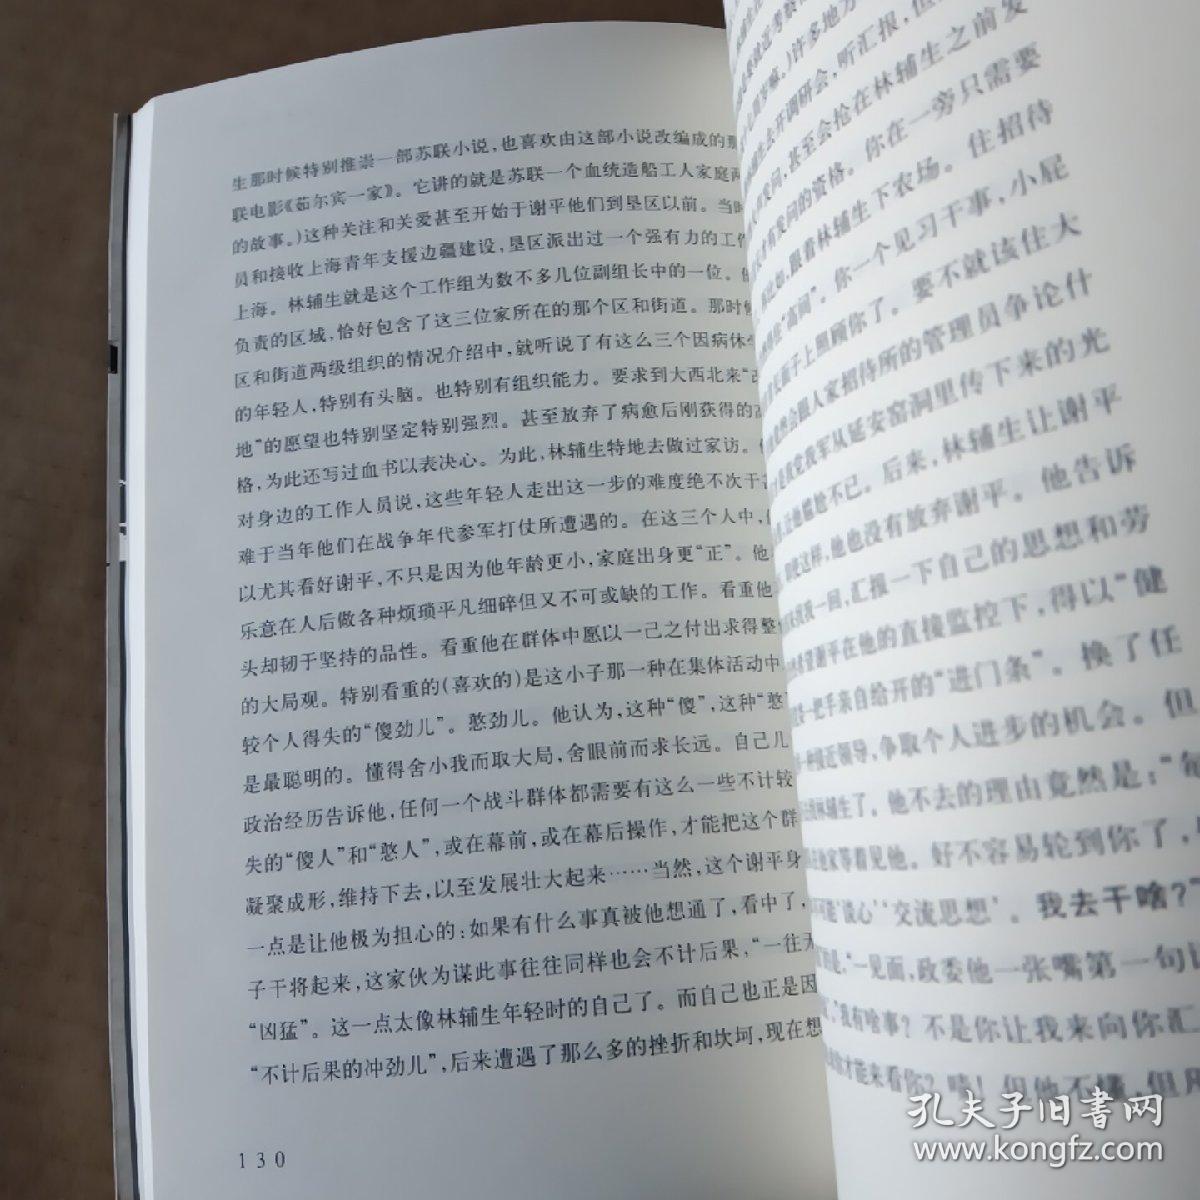 生那时候特别推崇一部苏联小说，也喜欢由这部小说改编成的那
联电影《茹尔宾一家》。它讲的就是苏联一个血统造船工人家庭两
的故事。)这种关注和关爱甚至开始于谢平他们到垦区以前。当时
员和接收上海青年支援边疆建设，垦区派出过一个强有力的工作
上海。林辅生就是这个工作组为数不多几位副组长中的一位。
负责的区域，恰好包含了这三位家所在的那个区和街道。那时候
区和街道两级组织的情况介绍中，就听说了有这么三个因病休学
的年轻人，特别有头脑。也特别有组织能力。要求到大西北来“
地”的愿望也特别坚定特别强烈。甚至放弃了病愈后刚获得的高
格，为此还写过血书以表决心。为此，林辅生特地去做过家访。
对身边的工作人员说，这些年轻人走出这一步的难度绝不次于
难于当年他们在战争年代参军打仗所遭遇的。在这三个人中，
以尤其看好谢平，不只是因为他年龄更小，家庭出身更“正”。他
乐意在人后做各种烦琐平凡细碎但又不可或缺的工作。看重他
头却韧于坚持的品性。看重他在群体中愿以一己之付出求得整
的大局观。特别看重的(喜欢的)是这小子那一种在集体活动中
较个人得失的“傻劲儿”。憨劲儿。他认为，这种“傻”，这种“憨
是最聪明的。懂得舍小我而取大局，舍眼前而求长远。自己几
政治经历告诉他，任何一个战斗群体都需要有这么一些不计较
失的“傻人”和“憨人”，或在幕前，或在幕后操作，才能把这个群
凝聚成形，维持下去，以至发展壮大起来……当然，这个谢平身
一点是让他极为担心的：如果有什么事真被他想通了，看中了，
子干将起来，这家伙为谋此事往往同样也会不计后果，“一往无
“凶猛”。这一点太像林辅生年轻时的自己了。而自己也正是因
“不计后果的冲劲儿”，后来遭遇了那么多的挫折和坎坷，现在想
130
许多地方
生去开调研会，听汇报，但
发问，甚至会抢在林辅生之前发
有发问的资格。你在一旁只需要
跟着林辅生下农场。住招待
“高间”。你一个见习干事，小屁
面子上照顾你了。要不就该住大
会跟人家招待所的管理员争论什
是我党我军从延安窑洞里传下来的光
让他尴尬不已。后来，林辅生让谢平
即使这样，他也没有放弃谢平。他告诉
一回，汇报一下自己的思想和劳
谢平在他的直接监控下，得以“健
一把手亲自给开的“进门条”。换了任
接近领导，争取个人进步的机会。但
林辅生了。他不去的理由竟然是：“每
家等着见他。好不容易轮到你了，
‘谈心’‘交流思想’。我去干啥？”
“一见面，政委他一张嘴第一句
我有啥事？不是你让我来向你汇
才能来看你？嘻！但他不懂，但凡
孔夫子旧书网
www.kongfz.com